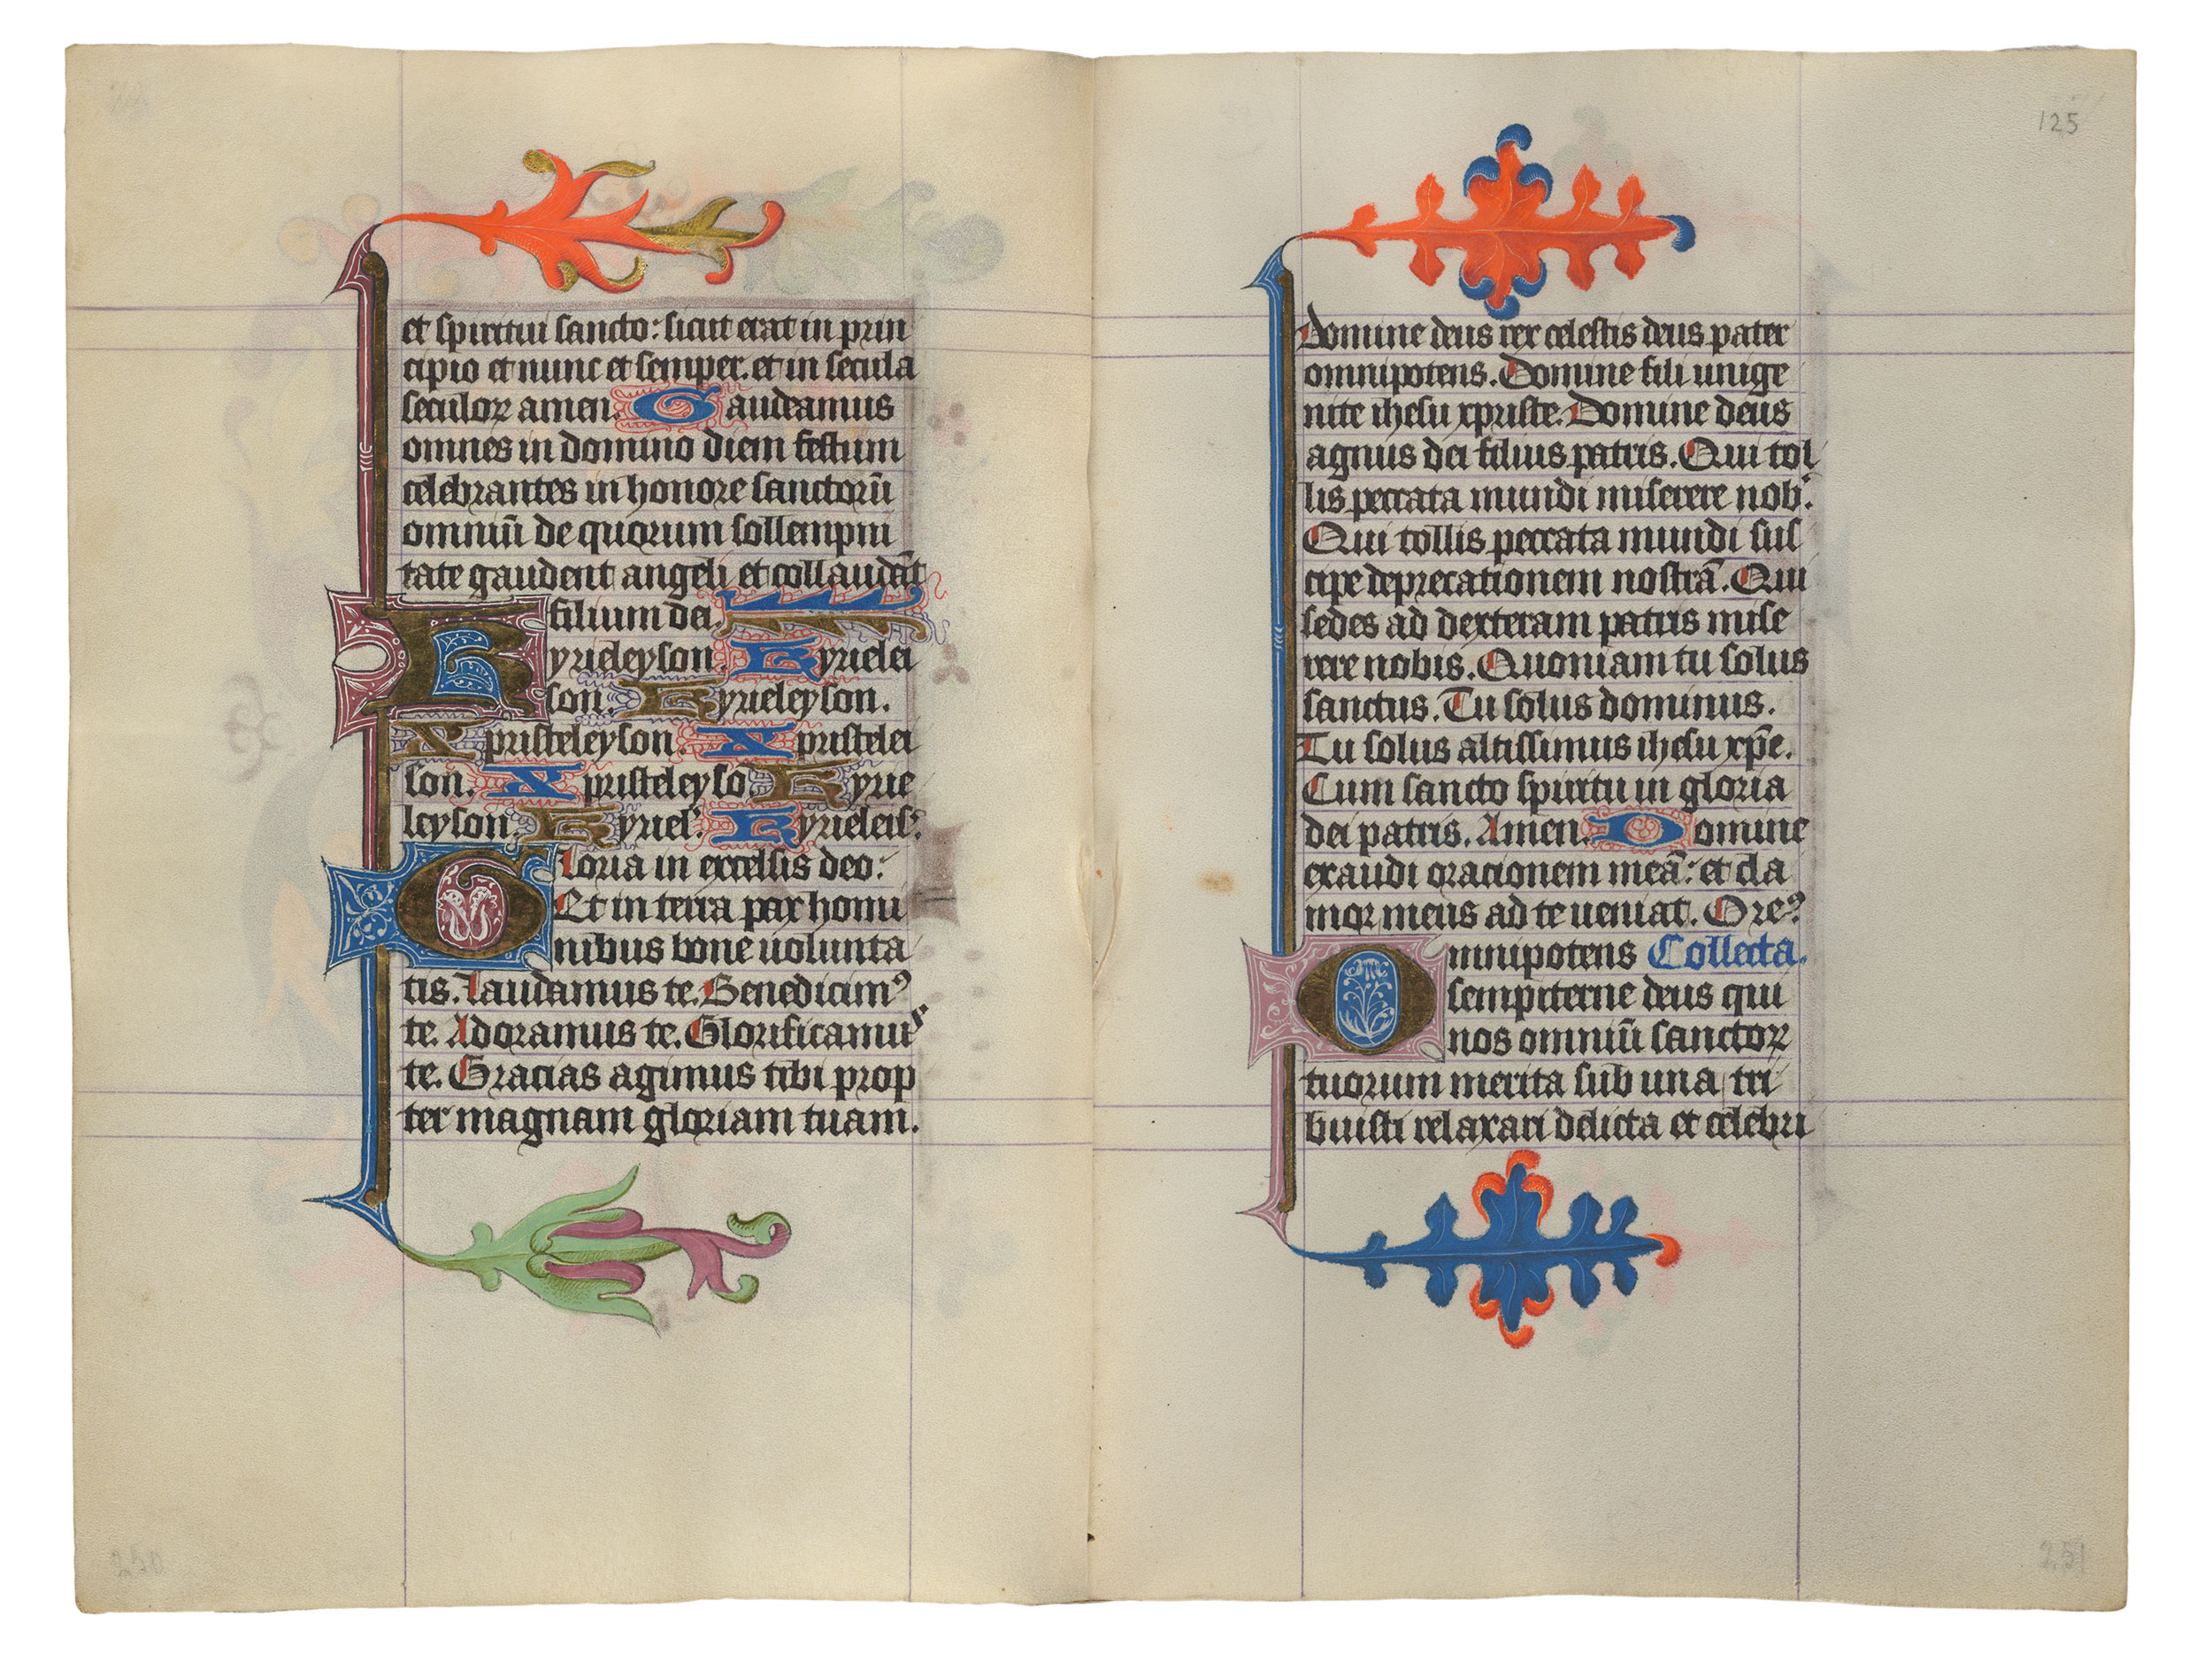 et spiritui sancto: sicut erat in prin
cipio et nunc et semper. et in secula
seculoꝝ amen. Gaudeamus
omnes in domino diem festum
celebrantes in honore sanctorū
omniū de quorum sollempni
tate gaudent angeli et collaudāt
filium dei.
Kyrieleyson. Kyrielei
son. Kyrieleyson.
Xpristeleyson. Xpristelei
son. Xpristeleyso. Kyrie
leyson. Kyriel'. Kyrieleis'.
Gloria in excelsis deo:
Et in terra pax homi
nibus bone uolunta
tis. Laudamus te. Benedicimꝰ
te. Adoramus te. Glorificamus
te. Gracias agimus tibi prop
ter magnam gloriam tuam.
250
125
Domine deus rex celestis deus pater
omnipotens. Domine fili unige
nite ihesu xpriste. Domine deus
agnus dei filius patris. Qui tol
lis peccata mundi miserere nob'.
Qui tollis peccata mundi sus
cipe deprecationem nostrā. Qui
sedes ad dexteram patris mise
rere nobis. Quoniam tu solus
sanctus. Tu solus dominus.
Tu solus altissimus ihesu xp̄e.
Cum sancto spiritu in gloria
dei patris. Amen. Domine
exaudi oracionem meā: et cla
mor meus ad te ueniat. Oreꝰ
Omnipotens Collecta.
sempiterne deus qui
nos omniū sanctoꝝ
tuorum merita sub una tri
buisti relaxari delicta et celebri
251